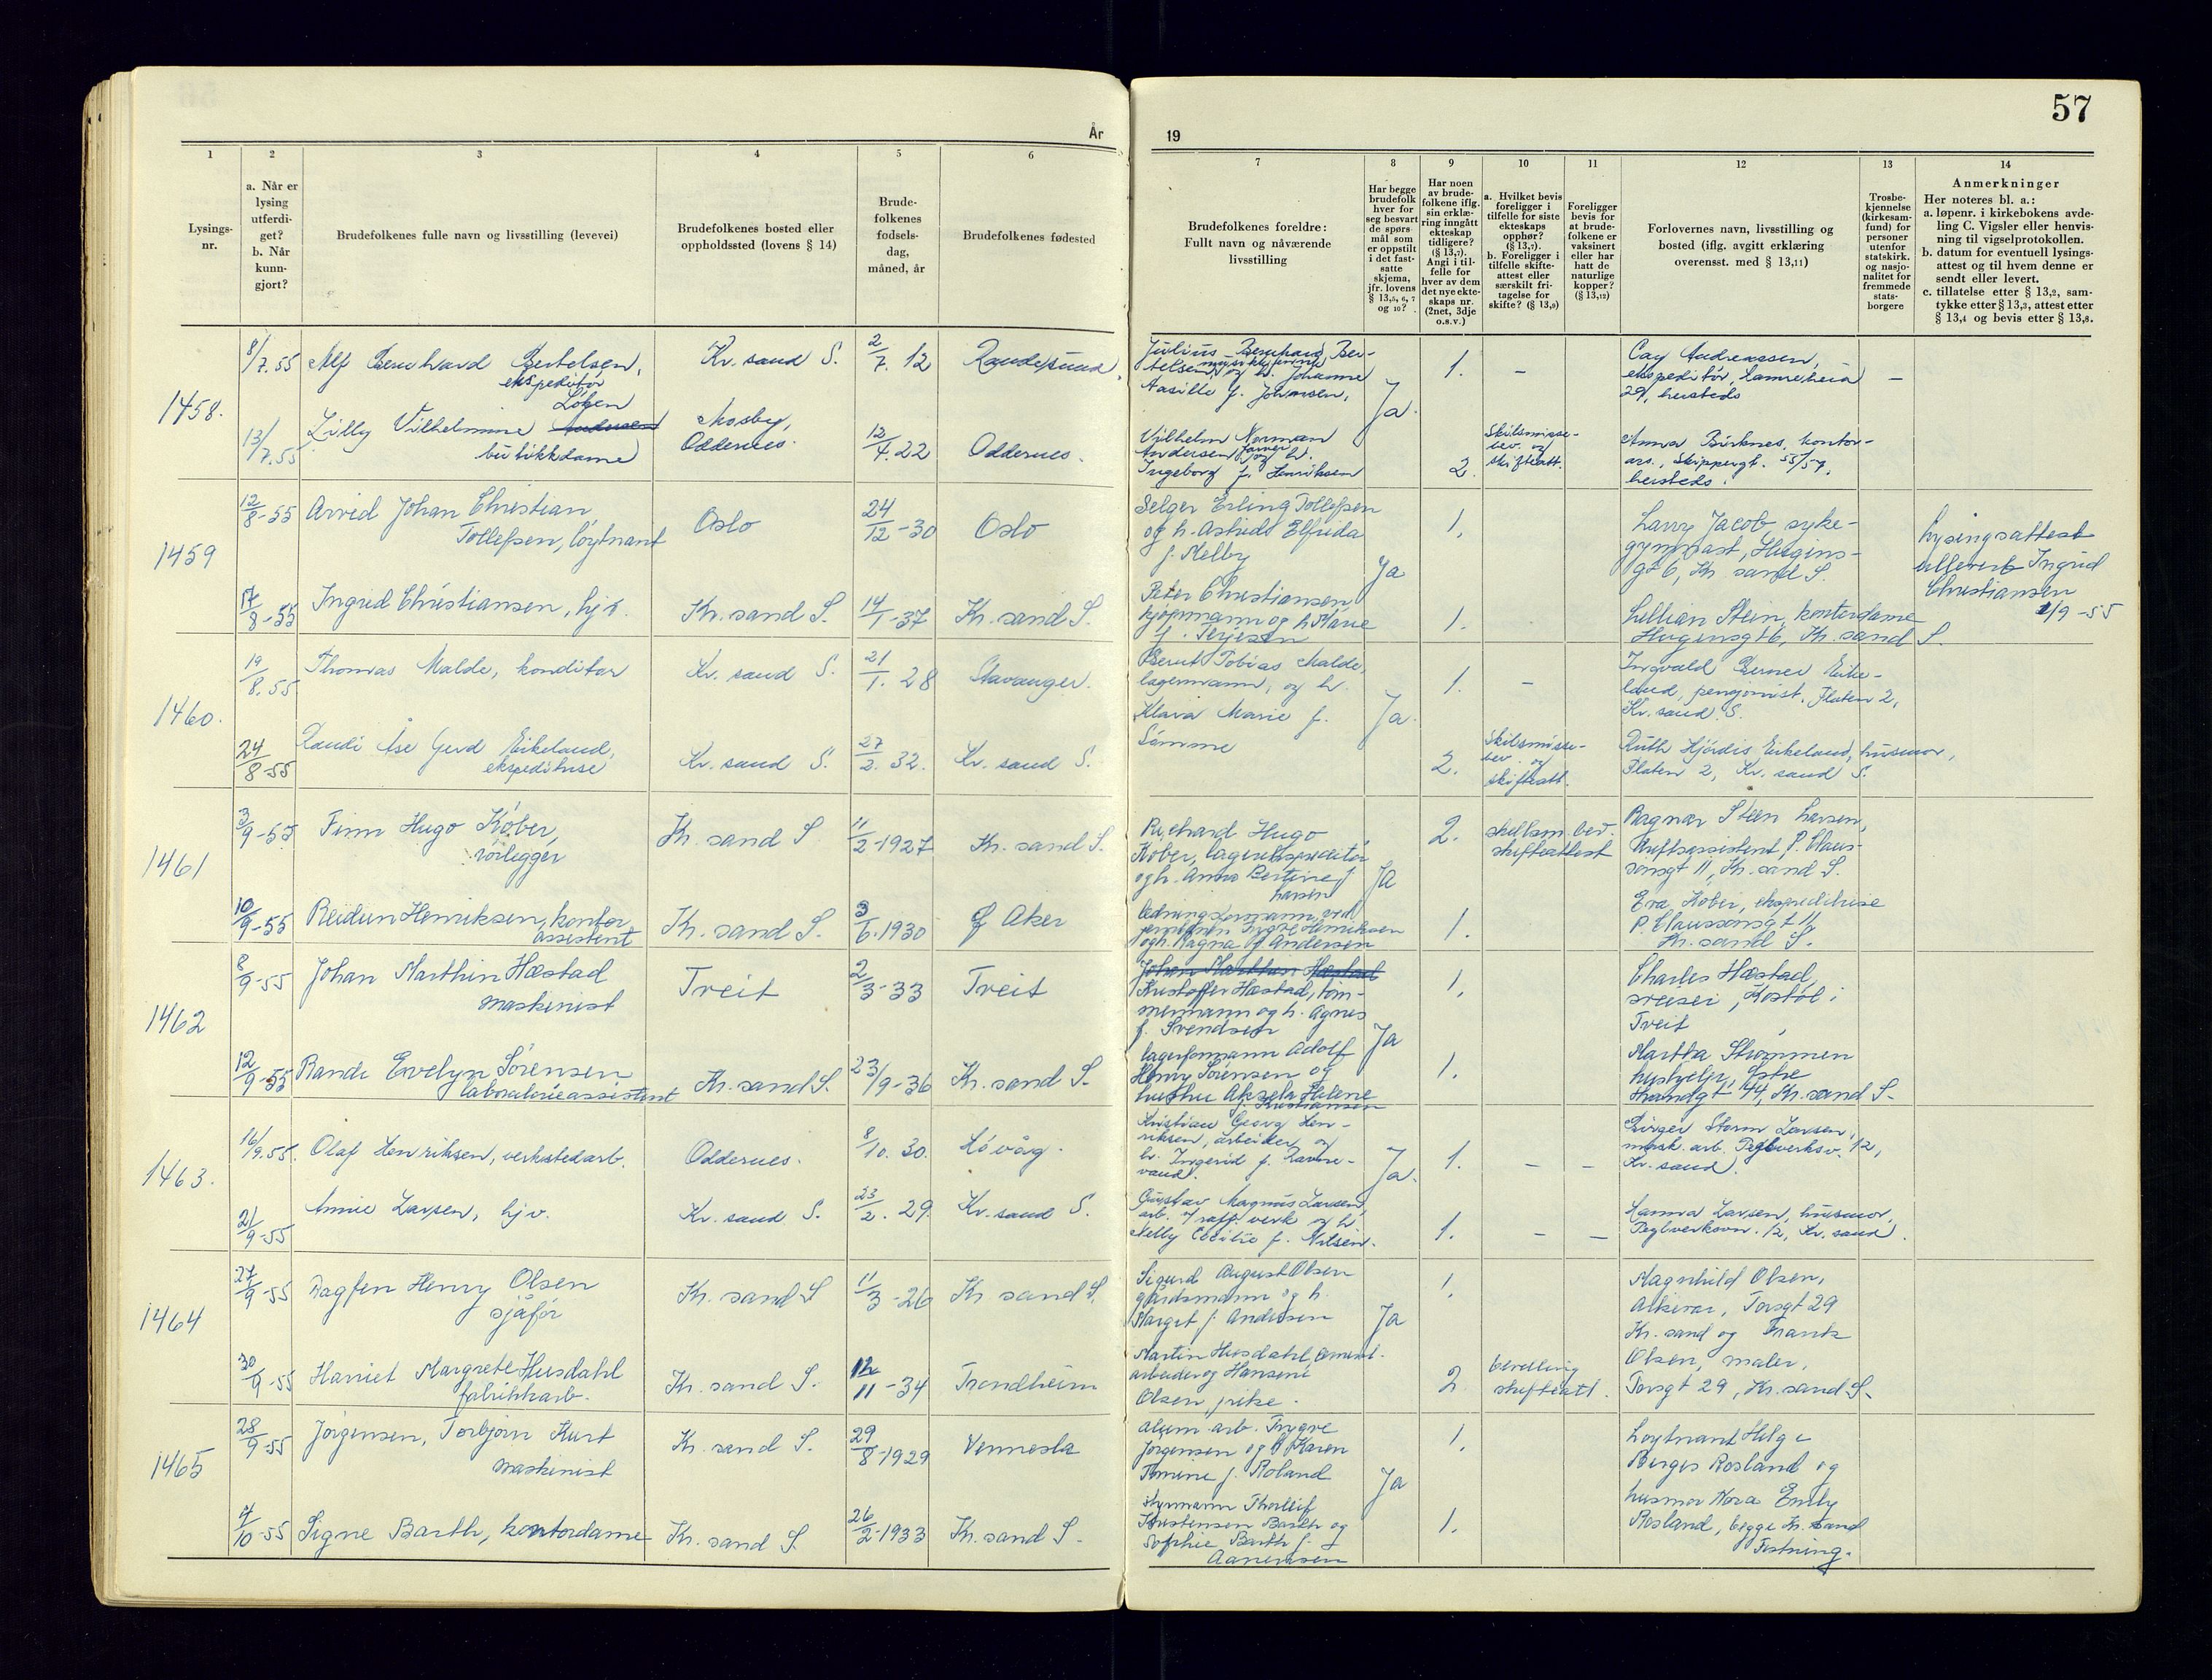 57
År
19
1
2
3
4
5
6
7
8
9
10
11
12
13
14
Lysings-
nr.
a. Når er
lysing
utferdi-
get?
b. Når
kunn-
gjort?
Brudefolkenes fulle navn og livsstilling (levevei)
Brudefolkenes bosted eller
oppholdssted (lovens § 14)
Brude-
folkenes
fødsels-
dag,
måned, år
Brudefolkenes fødested
Brudefolkenes foreldre:
Fullt navn og nåværende
livsstilling
Har begge
brudefolk
hver for
seg besvart
de spørs-
mål som
er oppstilt
i det fast-
satte
skjema,
jfr. lovens
§ 13,5, 6, 7
og 10?
Har noen
av brude-
folkene iflg.
sin erklæ-
ring inngått
ekteskap
tidligere?
(§ 13,7).
Angi i til-
felle for
hver av dem
det nye ekte-
skaps nr.
(2net, 3dje
o.s.v.)
a. Hvilket bevis
foreligger i
tilfelle for siste
ekteskaps
opphør?
(§ 13,7).
b. Foreligger i
tilfelle skifte-
attest eller
særskilt fri-
tagelse for
skifte? (§ 13,9)
Foreligger
bevis for
at brude-
folkene er
vaksinert
eller har
hatt de
naturlige
kopper?
(§ 13,12)
Forlovernes navn, livsstilling og
bosted (iflg. avgitt erklæring
overensst. med § 13,11)
Trosbe-
kjennelse
(kirkesam-
fund) for
personer
utenfor
statskirk.
og nasjo-
nalitet for
fremmede
stats-
borgere
Anmerkninger
Her noteres bl. a.:
a. løpenr. i kirkebokens avde-
ling C. Vigsler eller henvis-
ning til vigselprotokollen.
b. datum for eventuell lysings-
attest og til hvem denne er
sendt eller levert.
c. tillatelse etter § 13,2, sam-
tykke etter § 13,3, attest etter
§ 13,4 og bevis etter § 13,8.
1458.
8/7.55
Alf Bernhard Bertelsen,
ekspeditør
Kr. sand S.
2/7. 12
Randesund.
Julius Bernhard Ber-
telsen, og h. Johanne
Aasille f. Johansen,
Ja.
1.
–
Cay Andreassen,
ekspeditør, Lamreheia
29, hersteds
–
13/7.55
Løken
Lilly Vilhelmine Andersen
butikkdame
Mosby,
Oddernes.
12/4.22
Oddernes.
Vilhelm Norman
Andersen og h.
Ingeborg f. Henriksen
2.
Skilsmisse-
bev. og
skifteatt.
Anna Birknes, kontor-
ass., Skippergt. 55/57,
hersteds.
1459
12/8-55
Arvid Johan Christian
Tollefsen, løytnant
Oslo
24/12-30
Oslo
Selger Erling Tollefsen
og h. Astrids Elfrida
f. Melby
Ja
1.
Larry Jacob, syke-
gymnast, Hugins-
gt 6, Kr. sand S.
Lysingsattest
utlevert Ingrid
Christiansen
1/9-55
17/8-55
Ingrid Christiansen, hjv.
Kr. sand S.
14/1-37
Kr. sand S.
Peter Christiansen
kjøpmann og h Marie
f. Terjesen
1.
Lillian Steen, kontordame
Huginsgt 6, Kr. sand S.
1460.
19/8.55
Thomas Malde, konditor
Kr. sand S.
21/1. 28
Stavanger.
Bernt Tobias Malde,
lagermann, og h.
Klara Marie f.
Sømme
Ja.
1.
–
Ingvald Berner Eike-
land, pensjonist, Flaten 2,
Kr. sand S.
24/8-55
Randi Åse Gerd Eikeland,
ekspeditrise
Kr. sand S.
27/2. 32.
Kr. sand S.
2.
Skilsmisse-
bev. og
skifteatt.
Ruth Hjørdis Eikeland, husmor,
Flaten 2, Kr. sand S.
1461
3/9-55
Finn Hugo Køber,
rørlegger
Kr. sand S
11/2-1927
Kr. sand S.
Richard Hugo
Køber, lagerekspeditør
og h. Anna Bertine f
Larsen
Ja
2.
skilsm. bev.
skifteattest
Ragnar Steen Larsen,
driftsassistent, P. Claus-
sønsgt 11, Kr. sand S.
10/9-55
Reidun Henriksen, kontor
assistent
Kr. sand S.
3/6.1930
Ø Aker
og h. Ragna f. Andersen
1.
Eva Køber, ekspeditrise
P. Claussønsgt 11
Kr. sand S.
1462
8/9-55
Johan Marthin Hæstad
maskinist
Tveit
2/3-33
Tveit
Johan Marthin Hæstad
Kristoffer Hæstad, tøm-
mermann og h. Agnes
f. Svendsen
Ja
1.
Charles Hæstad,
sveiser, Kostøl i
Tveit
12/9-55
Randi Evelyn Sørensen
laboratorieassistent
Kr. sand S.
23/9-36
Kr. sand S.
lagerformann Adolf
Henry Sørensen og
hustru Aksela Helene
f. Kristiansen
1.
Martha Strømmen
hushjelp, Østre
Strandgt 44, Kr. sand S.
1463.
16/9.55.
Olaf Henriksen, verkstedarb.
Oddernes.
8/10. 30.
Høvåg.
Kristian Georg Hen-
riksen, arbeider og
h. Ingerid f. Ramse-
vand.
Ja.
1.
–
–
Birger Storm Larsen,
mask. arb. Teglverksv. 12,
Kr. sand.
21/9-55
Annie Larsen, hjv.
Kr. sand S.
23/2. 29.
Kr. sand S.
Gustav Magnus Larsen,
arb. v/ raff. verk og h.
Nelly Cecilie f. Nilsen.
1.
–
–
Hanna Larsen, husmor,
Teglverksvn. 12, Kr. sand.
1464
27/9-55
Dagfin Henry Olsen
sjåfør
Kr. sand S
11/3-26
Kr sand S.
Sigurd August Olsen
gårdsmann og h.
Margit f. Andersen
Ja
1.
Magnhild Olsen,
Torvgt 29
Kr. sand og Frantz
30/9-55
Harriet Margrete Husdahl
fabrikkarb.
Kr. sand S.
11-34
Trondheim
Martin Husdahl, cement.
arbeider og Hansine
Olsen, pike.
2
bevilling
skifteatt.
Olsen, maler,
Torvgt 29, Kr. sand S.
1465
28/9-55
Jørgensen, Torbjørn Kurt
maskinist
Kr. sand S.
29/8-1929
Vennesla
alum. arb. Trygve
Jørgensen og h Karen
Tomine f. Roland
Ja
1.
Løytnant Helge
Birger Rosland og
husmor Nora Emly
Rosland, begge Kr. sand
Festning.
4/10-55
Signe Barth, kontordame
Kr. sand S.
26/2-1933
Kr. sand S.
styrmann Thorleif
Kristensen Barth og
Sophie Barth f.
Aanensen
1.